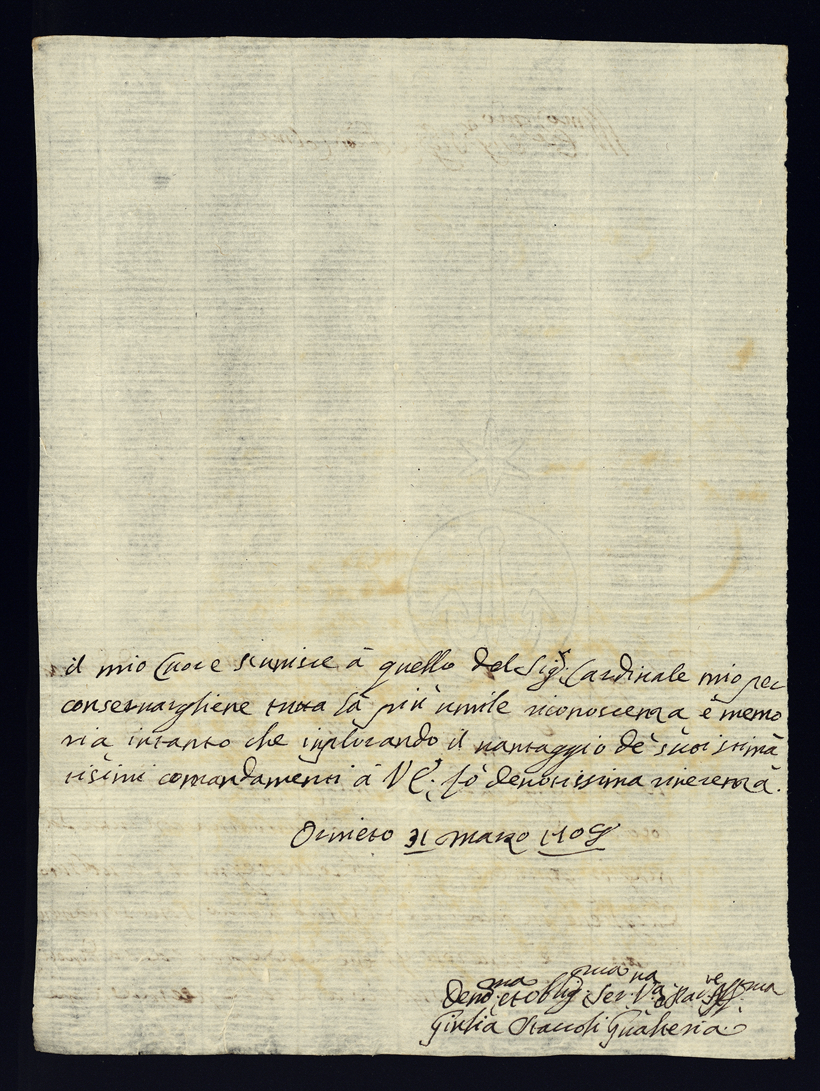 il mio Cuore s'unisce à quello del Sig.r Cardinale mio per
conseruargliene tutta la più umile riconoscenza è memo
ria intanto che inplorando il uantaggio de suoi stima
tissimi comandamenti à V E; fò deuotissima riuerenza.
Oruieto 31 Marzo 1708
Deuo.ma et obblig.ma Ser.na V.a
Giulia Staccoli Gualteria